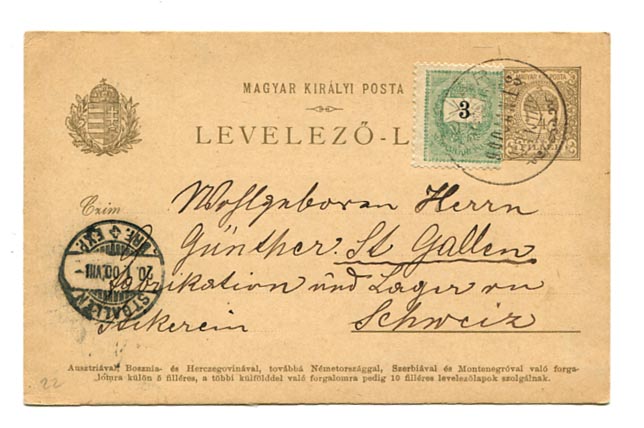 MAGYAR KIRÁLYI POSTA
LEVELEZŐ-L
3
3 3
FILLÉR
Czim
Wohlgeboren Herrn
Günther. St Gallen
Fabrikation und Lager von
Stikerein Schweiz
BRF. EXP.
20. 00.VIII
ST. GALLEN
Ausztriával, Bosznia- és Herczegovinával, továbbá Németországgal, Szerbiával és Montenegróval való forga-
lomra külön 5 filléres, a többi külfölddel való forgalomra pedig 10 filléres levelezőlapok szolgálnak.
22